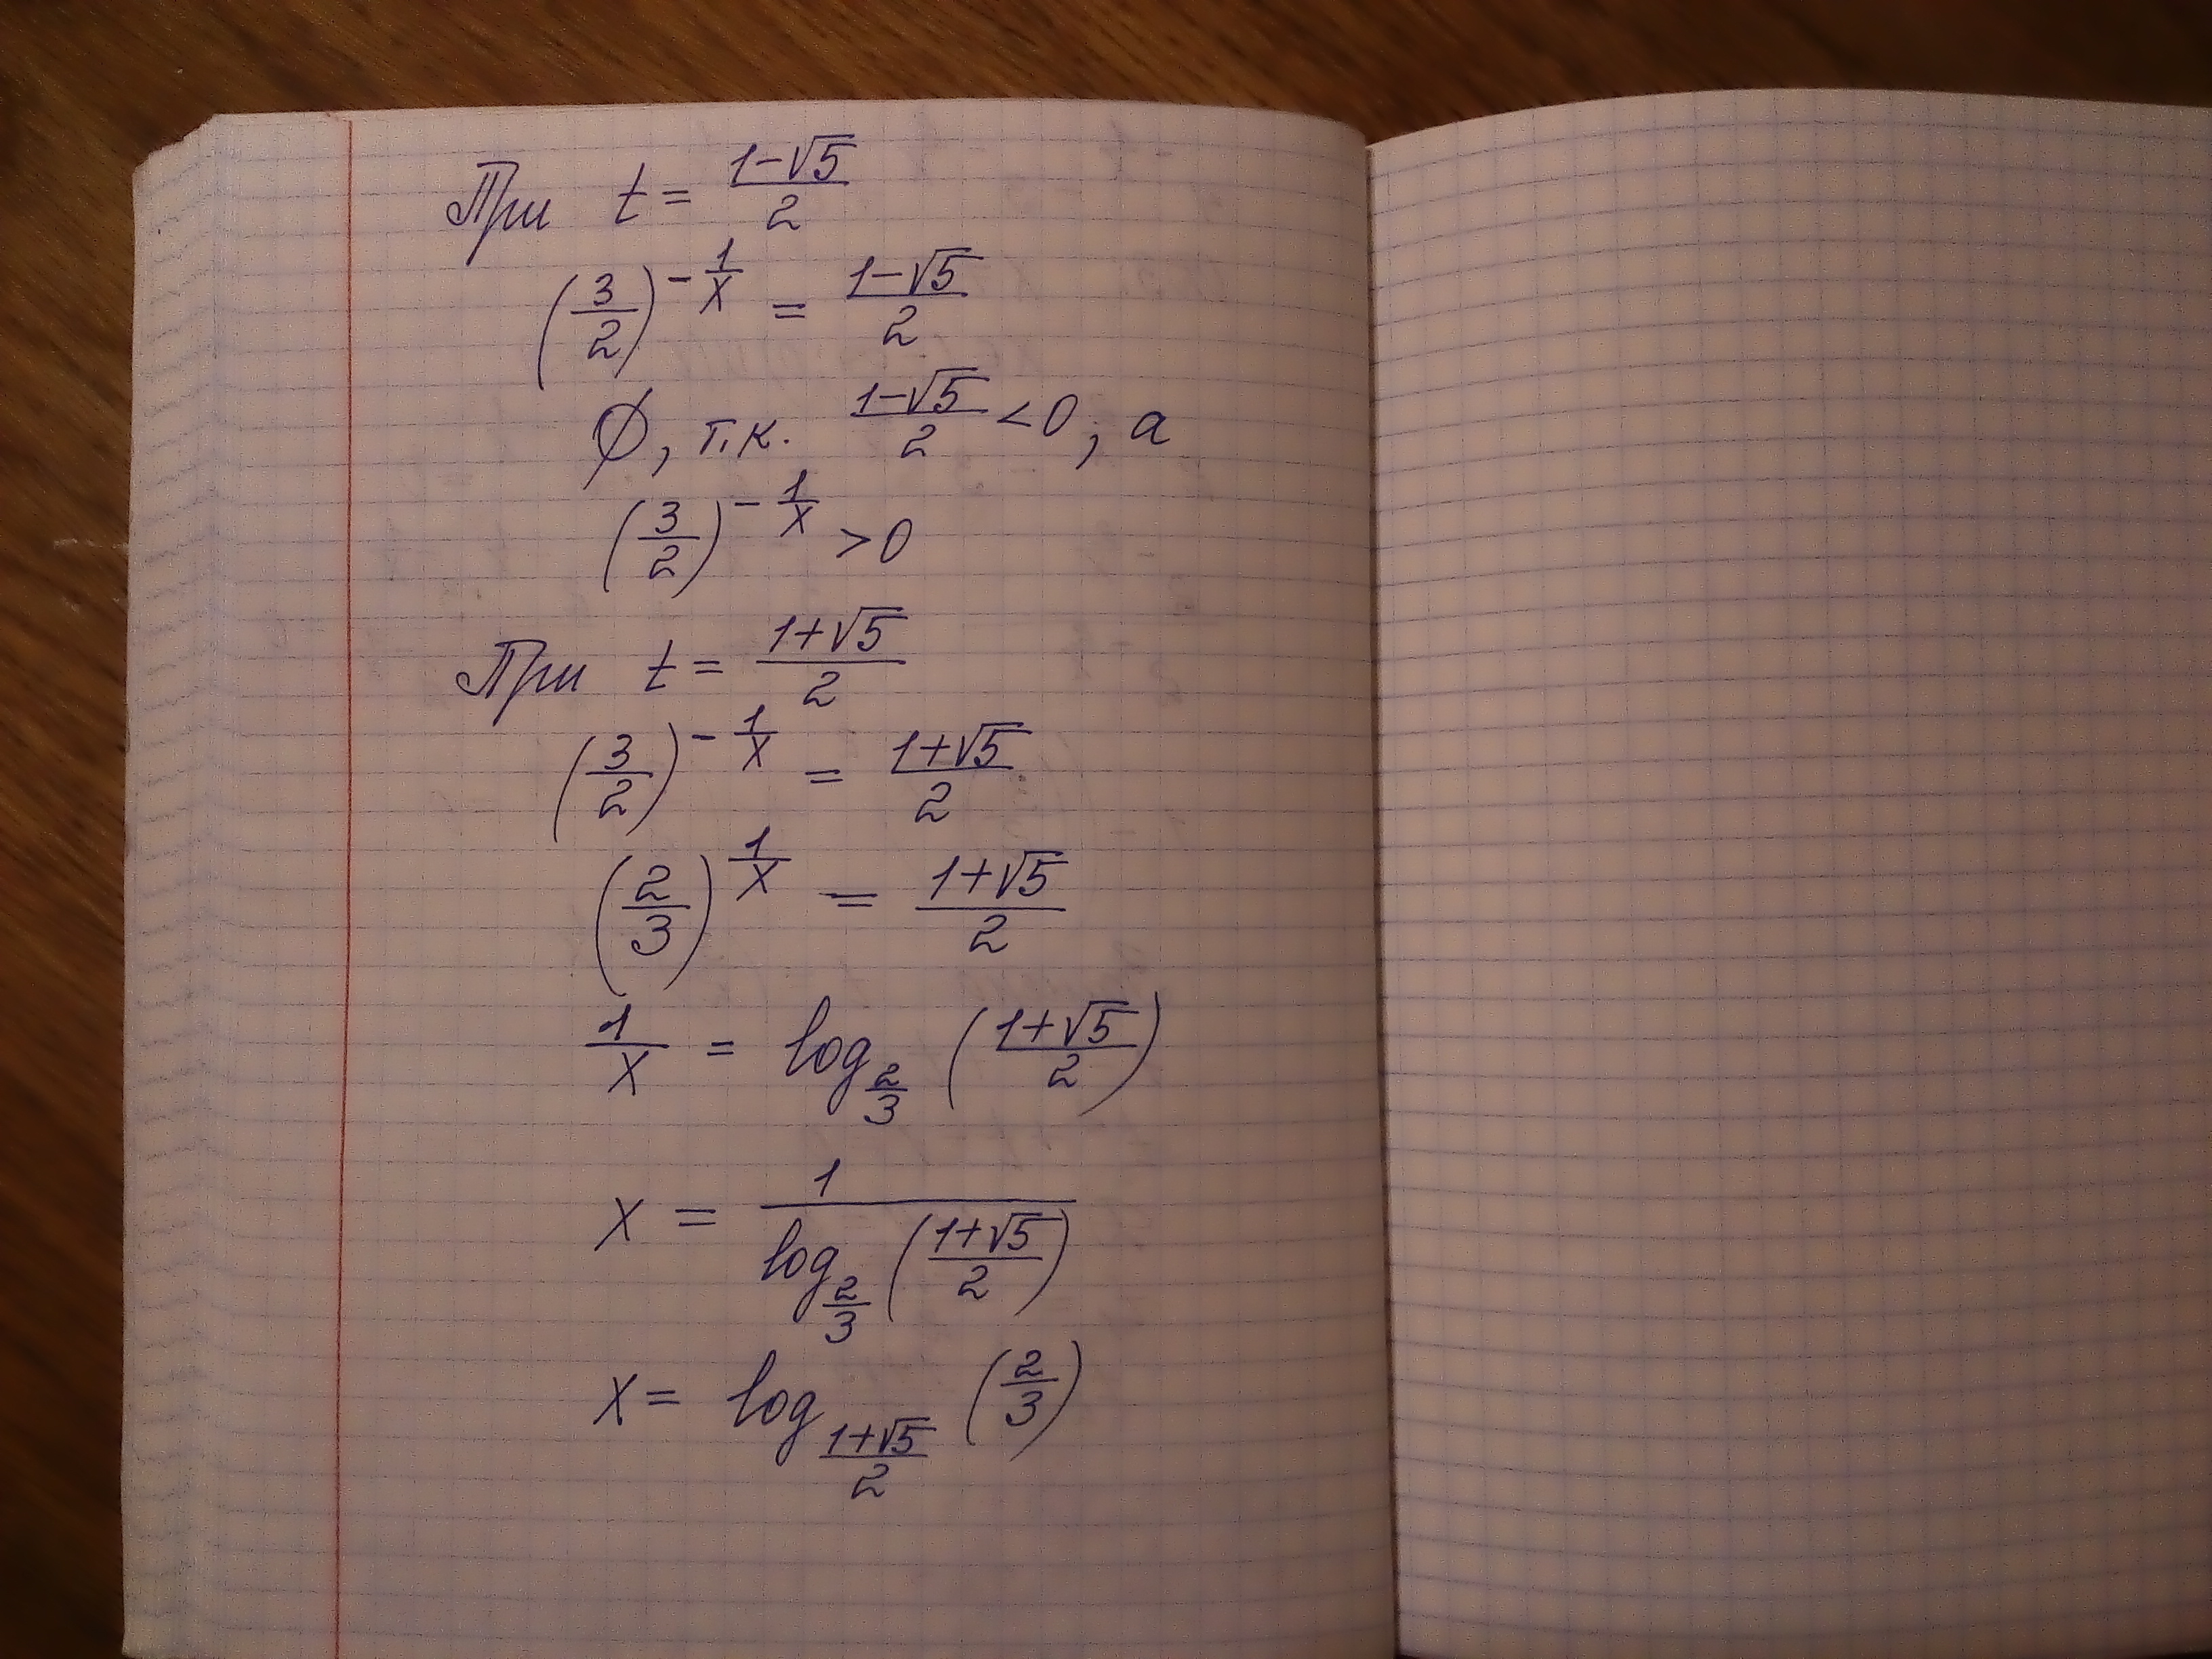 При t = \frac{1-\sqrt{5}}{2}
\left(\frac{3}{2}\right)^{-\frac{1}{x}} = \frac{1-\sqrt{5}}{2}
∅, т.к. \frac{1-\sqrt{5}}{2} < 0, а
\left(\frac{3}{2}\right)^{-\frac{1}{x}} > 0
При t = \frac{1+\sqrt{5}}{2}
\left(\frac{3}{2}\right)^{-\frac{1}{x}} = \frac{1+\sqrt{5}}{2}
\left(\frac{2}{3}\right)^{\frac{1}{x}} = \frac{1+\sqrt{5}}{2}
\frac{1}{x} = \log_{\frac{2}{3}} \left(\frac{1+\sqrt{5}}{2}\right)
x = \frac{1}{\log_{\frac{2}{3}} \left(\frac{1+\sqrt{5}}{2}\right)}
x = \log_{\frac{1+\sqrt{5}}{2}} \left(\frac{2}{3}\right)